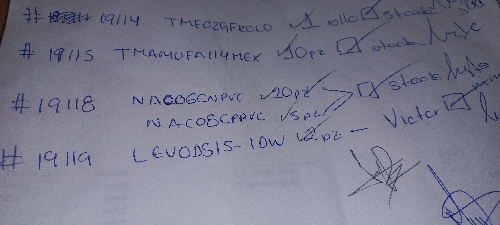 # 19114 TMF02GFROLO 1 rollo stock
# 19115 TMAMUFA114MEX 10pz stock listo
# 19118 NACO6CNPVC 20pz stock listo
NACO8CPPVC 5pz
# 19119 LEVODS15-1DW 2pz - Victor